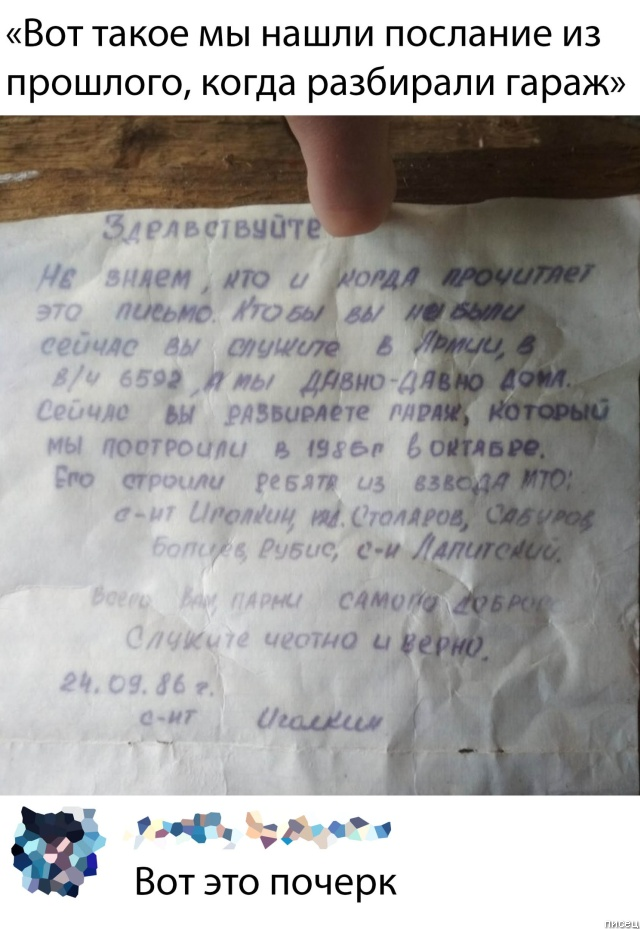 «Вот такое мы нашли послание из
прошлого, когда разбирали гараж»
Здравствуйте
Не знаем, кто и когда прочитает
это письмо. Кто бы вы не были
сейчас вы служите в Армии, в
в/ч 6592, а мы давно-давно дома.
Сейчас вы разбираете гараж, который
мы построили в 1986г в октябре.
Его строили ребята из взвода МТО:
с-нт Иголкин, мл. Столяров, Сабуров,
Рубис, с-н Лапитский.
Всего Вам, парни самого доброго
Служите честно и верно.
24.09.86 г.
с-нт Иголкин
Вот это почерк
писец